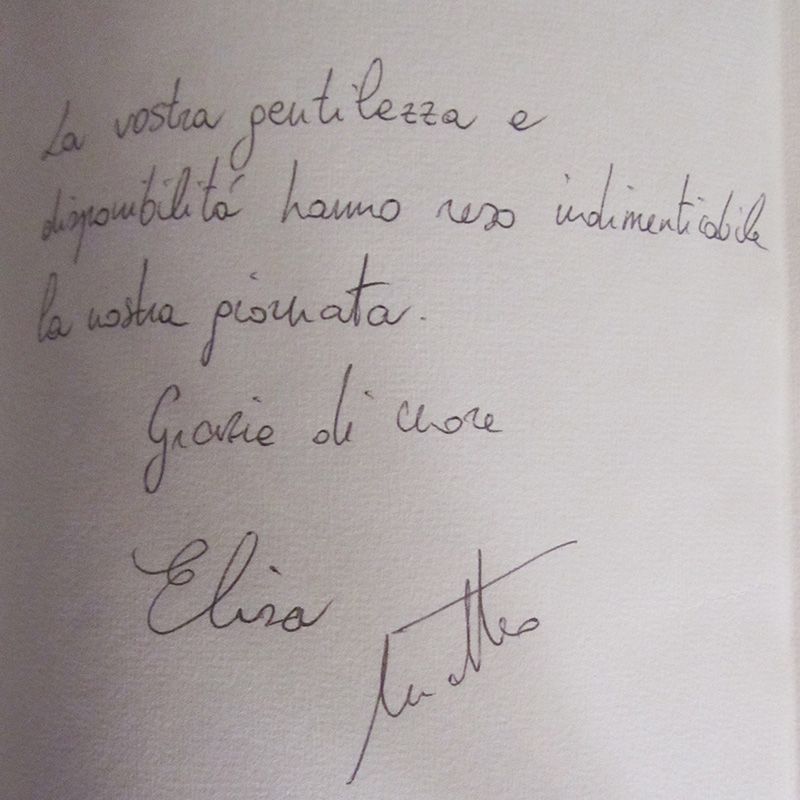 La vostra gentilezza e
disponibilitá hanno reso indimenticabile
la nostra giornata.
Grazie di cuore
Elisa
Matteo